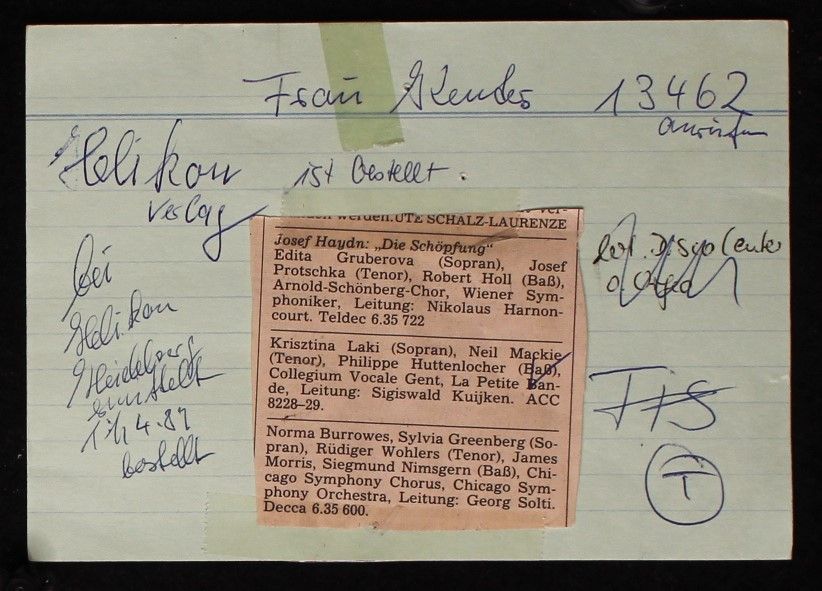 Frau 13462
anrufen
Helikon ist bestellt.
Verlag
werden. UTE SCHALZ-LAURENZE
Josef Haydn: „Die Schöpfung“
Edita Gruberova (Sopran), Josef
Protschka (Tenor), Robert Holl (Baß),
Arnold-Schönberg-Chor, Wiener Sym-
phoniker, Leitung: Nikolaus Harnon-
court. Teldec 6.35 722
Krisztina Laki (Sopran), Neil Mackie
(Tenor), Philippe Huttenlocher (Baß),
Collegium Vocale Gent, La Petite Ban-
de, Leitung: Sigiswald Kuijken. ACC
8228–29.
Norma Burrowes, Sylvia Greenberg (So-
pran), Rüdiger Wohlers (Tenor), James
Morris, Siegmund Nimsgern (Baß), Chi-
cago Symphony Chorus, Chicago Sym-
phony Orchestra, Leitung: Georg Solti.
Decca 6.35 600.
bei
Helikon
Heidelberg
bestellt
T